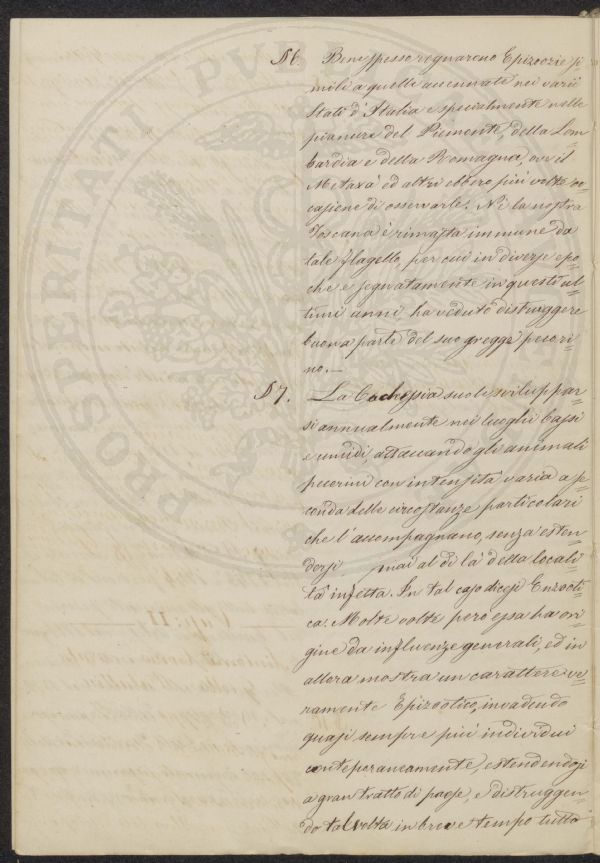 §6. Bene spesso regnarono Epizoozie si
mili a quelle accennate nei varii
Stati d'Italia e specialmente nelle
pianure del Piemonte, della Lom
bardia e della Romagna, ove il
Metaxà ed altri ebbero più volte oc-
casione di osservarle. Nè la nostra
Toscana è rimasta immune da
tale flagello, per cui in diverse epo-
che e segnatamente in questi ul-
timi anni ha veduto distruggere
buona parte del suo gregge pecori-
no.—
§7. La Cachessia suole sviluppar-
si annualmente nei luoghi bassi
e umidi, attaccando gli animali
pecorini con intensità varia a se-
conda delle circostanze particolari
che l'accompagnano, senza esten-
dersi mai al di là della locali-
tà infetta. In tal caso dicesi Enzooti-
ca. Molte volte però essa ha ori-
gine da influenze generali, ed in
allora mostra un carattere ve-
ramente Epizootico, invadendo
quasi sempre più individui
contemporaneamente, estendendosi
a gran tratto di paese, e distruggen-
do talvolta in breve tempo tutto
PROSPERITATI PVBL
Cap: II